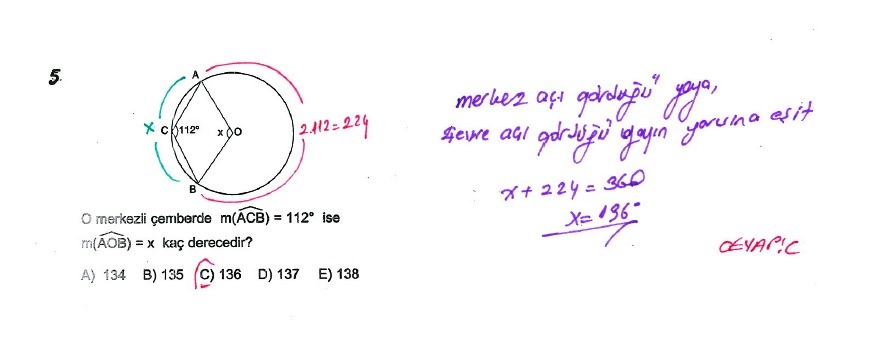 5.
A
X
C
112°
x
O
2.112=224
B
O merkezli çemberde m(ACB) = 112° ise
m(AOB) = x kaç derecedir?
A) 134 B) 135 C) 136 D) 137 E) 138
merkez açı gördüğü yaya,
çevre açı gördüğü yayın yarısına eşit
x + 224 = 360
x = 136°
CEVAP: C